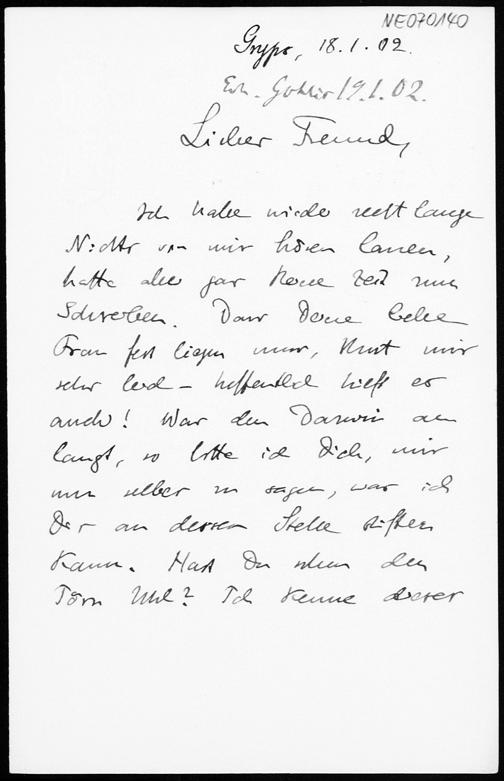 NE070140
Gryps, 18.1.02.
Erh. 19.1.02.
Lieber Freund,
Ich habe wieder recht lange
Nichts von mir hören lassen,
hatte aber gar keine Zeit zum
Schreiben. Dass Deine liebe
Frau fest liegen muss, thut mir
sehr leid – hoffentlich hilft es
auch! Was den Darwin an
langt, so bitte ich Dich, mir
nun selber zu sagen, was ich
Dir an dessen Stelle stiften
kann. Hast Du schon den
Jörn Uhl? Ich kenne dieses